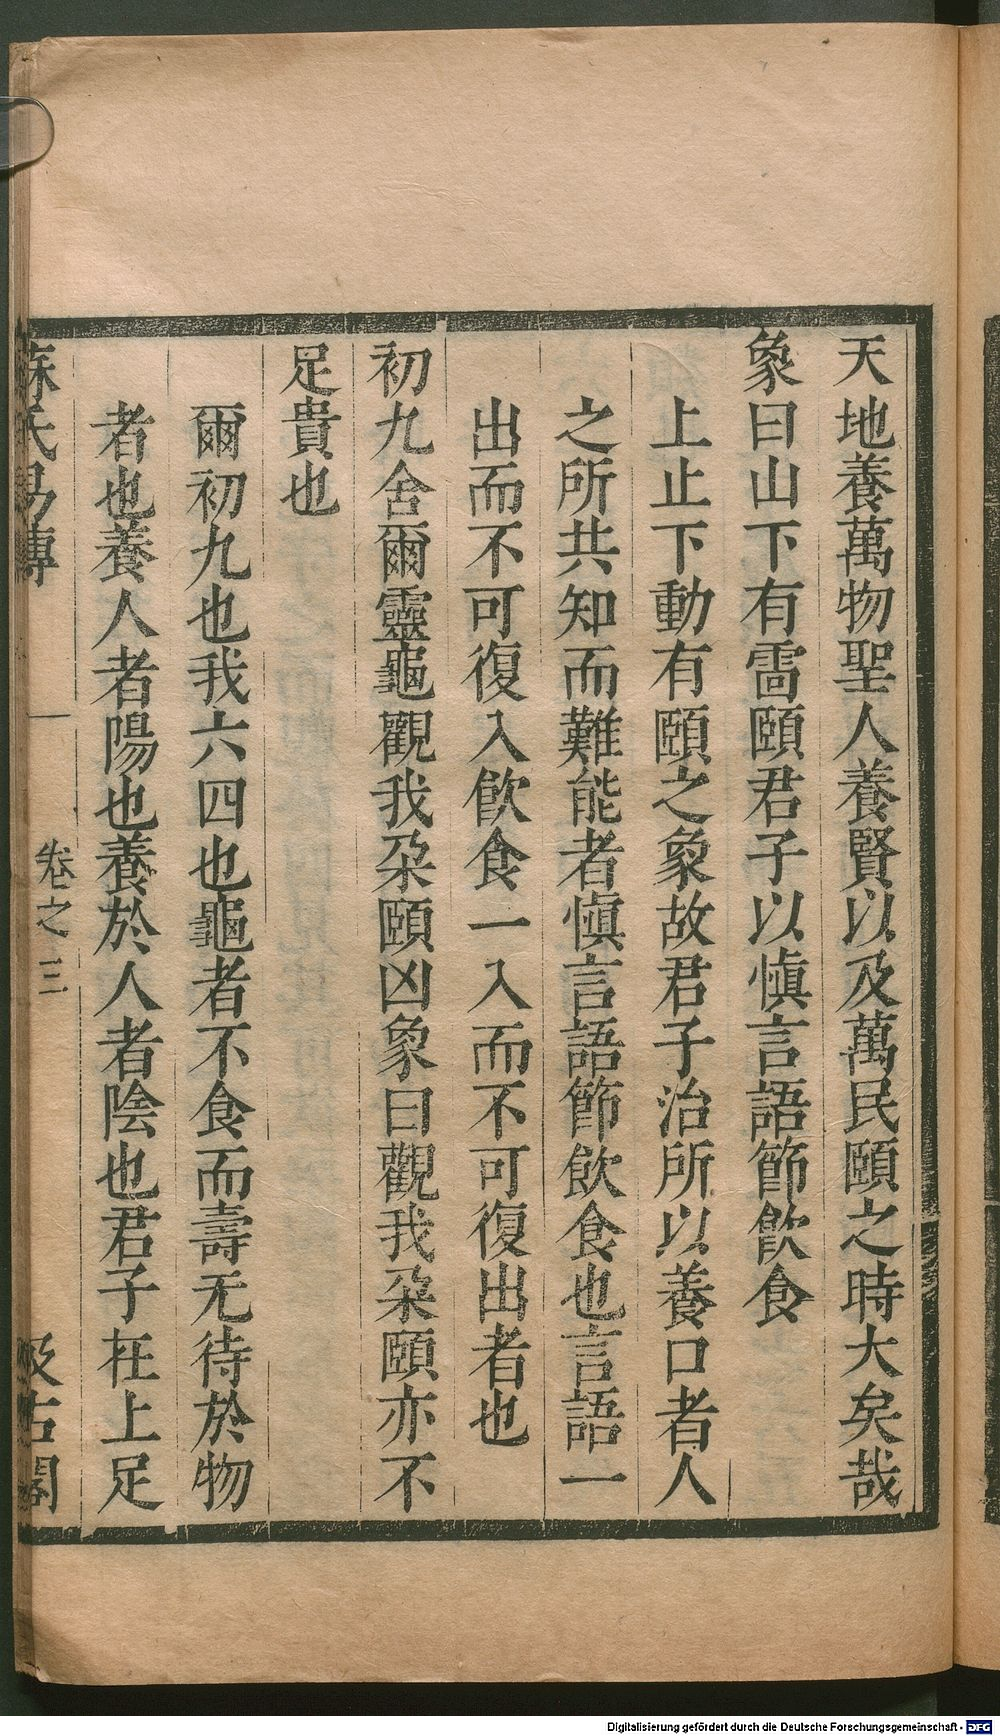 天地養萬物聖人養賢以及萬民頤之時大矣哉
象曰山下有雷頤君子以慎言語節飲食
上止下動有頤之象故君子治所以養口者人
之所共知而難能者慎言語節飲食也言語一
出而不可復入飲食一入而不可復出者也
初九舍爾靈龜觀我朶頤凶象曰觀我朶頤亦不
足貴也
爾初九也我六四也龜者不食而壽无待於物
者也養人者陽也養於人者陰也君子在上足
蘇氏易傳
卷之三
汲古閣
Digitalisierung gefördert durch die Deutsche Forschungsgemeinschaft - DFG